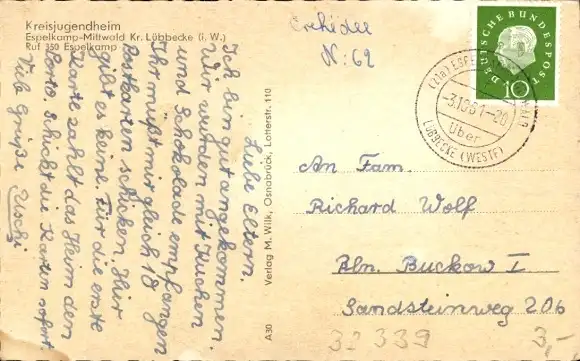 Kreisjugendheim
Espelkamp-Mittwald Kr. Lübbecke (i. W.)
Ruf 350 Espelkamp
Liebe Eltern.
Ich bin gut angekommen.
Wir wurden mit Kuchen
und Schokolade empfangen
Ihr müßt mir gleich 18
Postkarten schicken. Hier
gibt es keine. Für die erste
Karte zahlt das Heim den
Porto. Schickt die Karten sofort
Viele Grüße Uschi
Verlag M. Wilk, Osnabrück, Lotterstr. 110
A30
N: 69
DEUTSCHE BUNDESPOST
10
(21a) ESPELKAMP-MITTWALD
-3.10.61-20
Über
LÜBBECKE (WESTF)
An Fam.
Richard Wolf
Bln. Buckow I
Sandsteinweg 206
32339
3,-